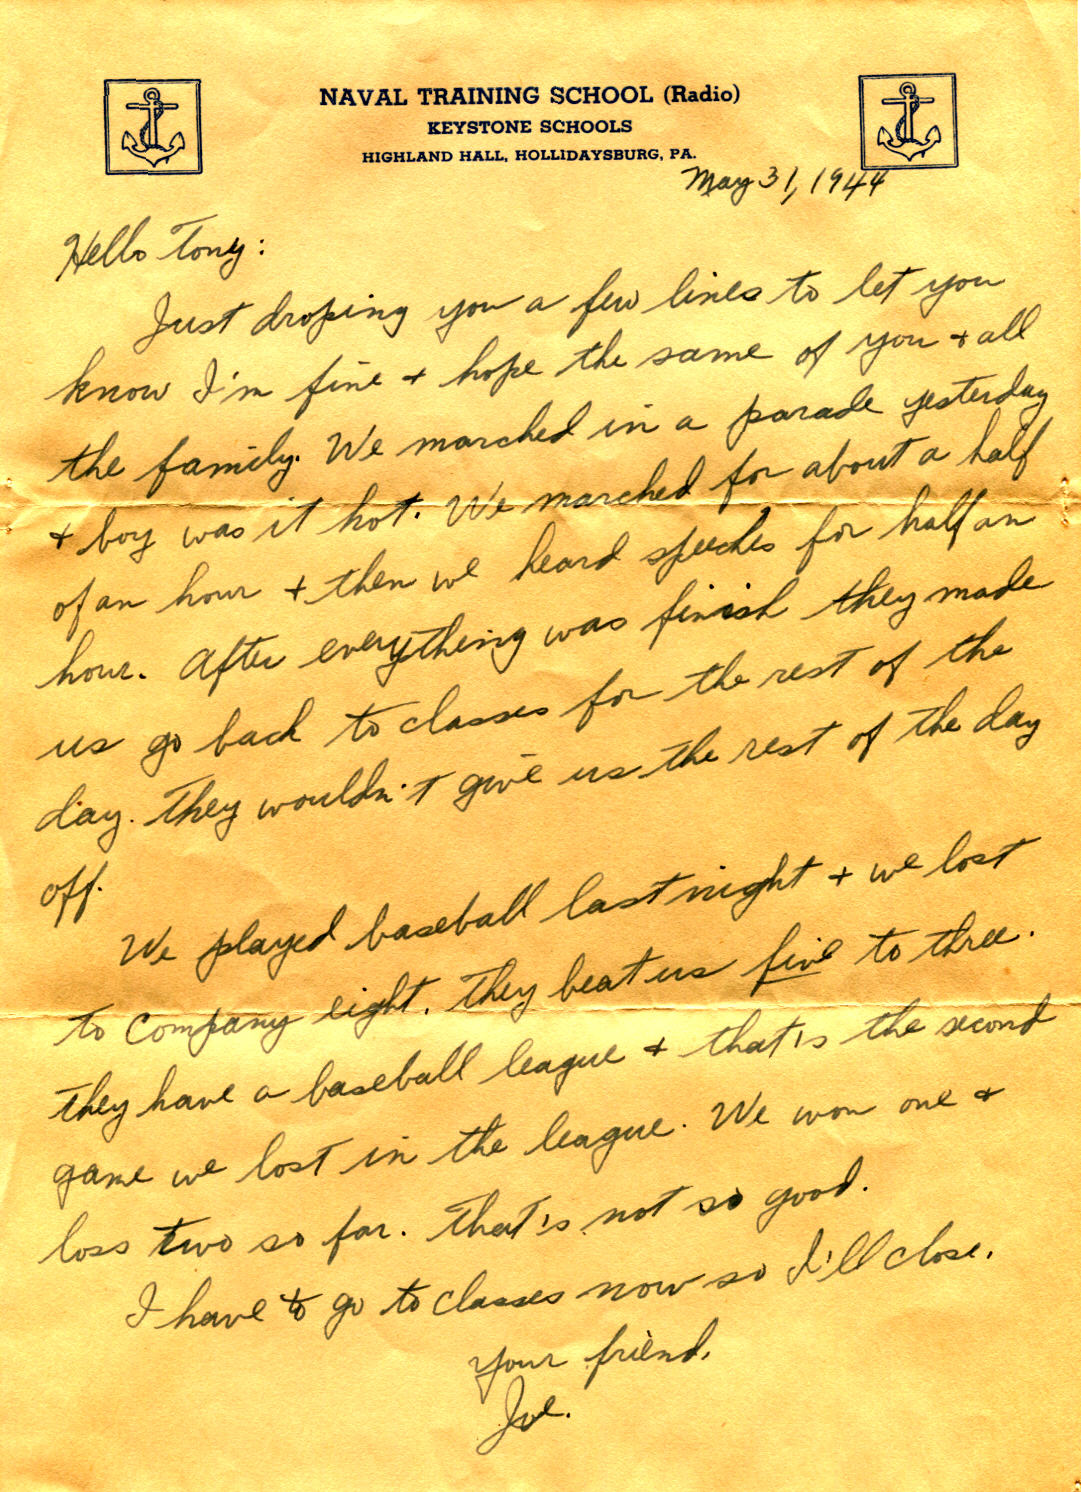 NAVAL TRAINING SCHOOL (Radio)
KEYSTONE SCHOOLS
HIGHLAND HALL, HOLLIDAYSBURG, PA.
May 31, 1944
Hello Tony:
Just droping you a few lines to let you
know I'm fine + hope the same of you + all
the family. We marched in a parade yesterday
+ boy was it hot. We marched for about a half
of an hour + then we heard speeches for half an
hour. After everything was finish they made
us go back to classes for the rest of the
day. They wouldn't give us the rest of the day
off.
We played baseball last night + we lost
to Company eight. They beat us five to three.
They have a baseball league + that's the second
game we lost in the league. We won one +
loss two so far. That's not so good.
I have to go to classes now so I'll close.
Your friend,
Joe.